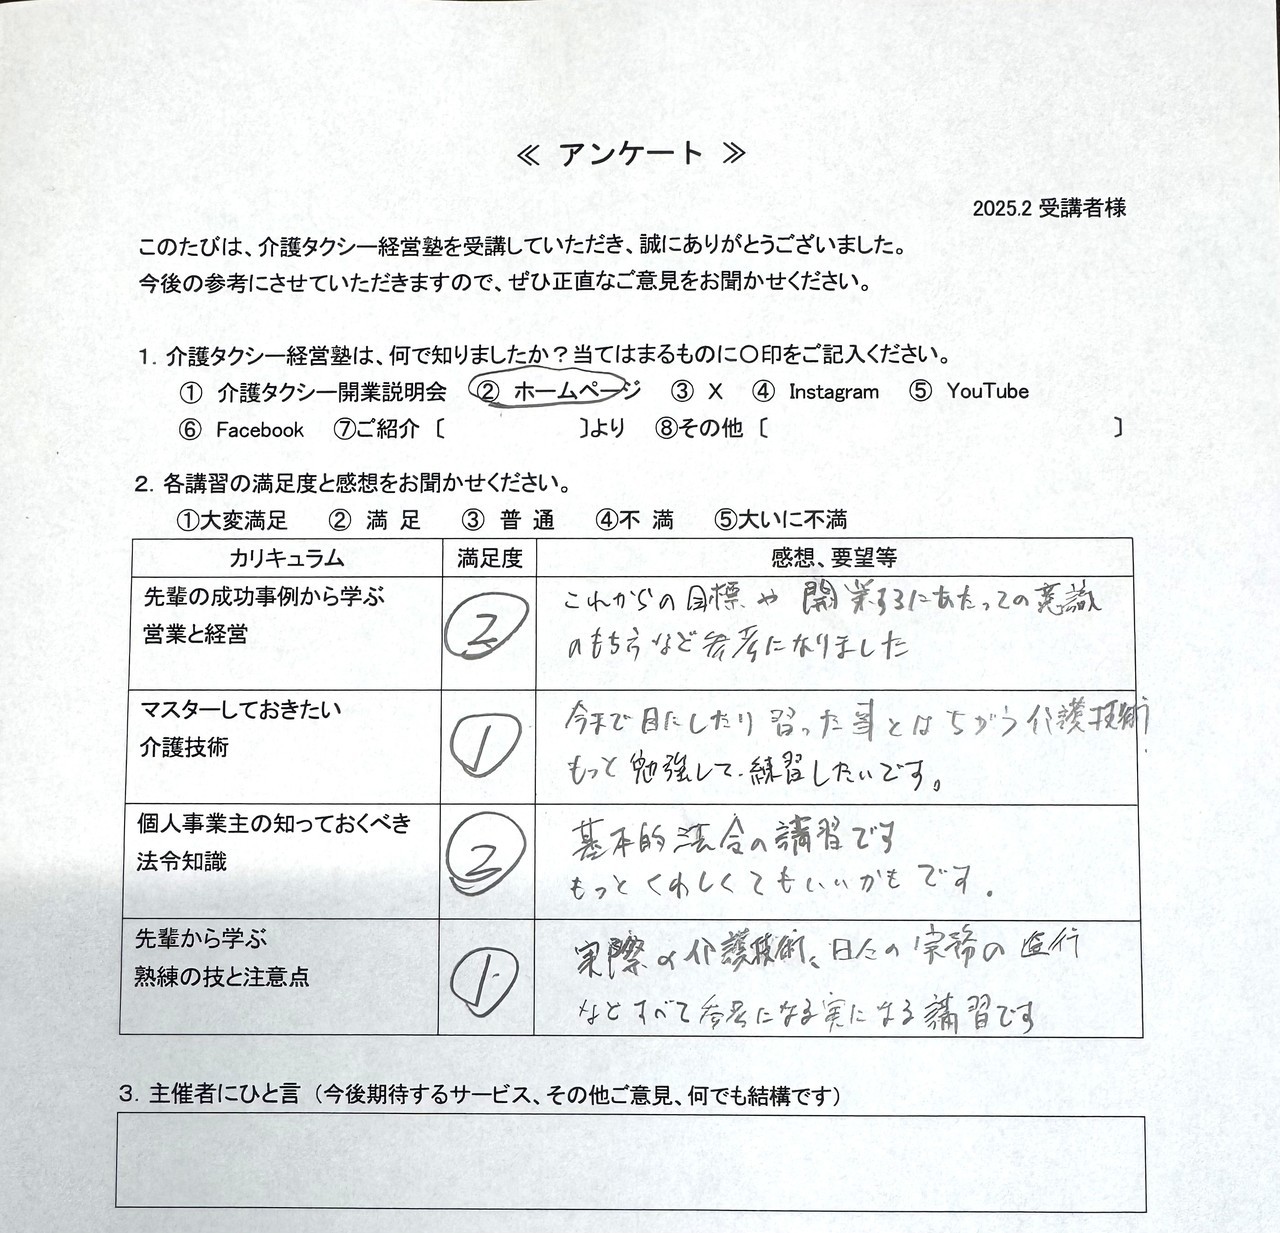 ≪ アンケート ≫
2025.2 受講者様
このたびは、介護タクシー経営塾を受講していただき、誠にありがとうございました。
今後の参考にさせていただきますので、ぜひ正直なご意見をお聞かせください。
1. 介護タクシー経営塾は、何で知りましたか？当てはまるものに〇印をご記入ください。
① 介護タクシー開業説明会 ② ホームページ ③ X ④ Instagram ⑤ YouTube
⑥ Facebook ⑦ご紹介〔 〕より ⑧その他〔 〕
2. 各講習の満足度と感想をお聞かせください。
①大変満足 ② 満 足 ③ 普 通 ④不 満 ⑤大いに不満
カリキュラム 満足度 感想、要望等
先輩の成功事例から学ぶ
営業と経営
②
これからの目標や 開業するにあたっての意識
のもち方など参考になりました
マスターしておきたい
介護技術
①
今まで目にしたり 習った事とはちがう介護技術
もっと勉強して、練習したいです。
個人事業主の知っておくべき
法令知識
②
基本的法令の講習です
もっとくわしくてもいいかもです。
先輩から学ぶ
熟練の技と注意点
①
実際の介護技術、日々の実務の進行
などすべて参考になる実になる講習です
3. 主催者にひと言（今後期待するサービス、その他ご意見、何でも結構です）